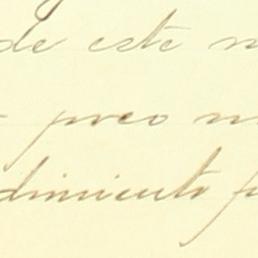 de este
preo
dimiento